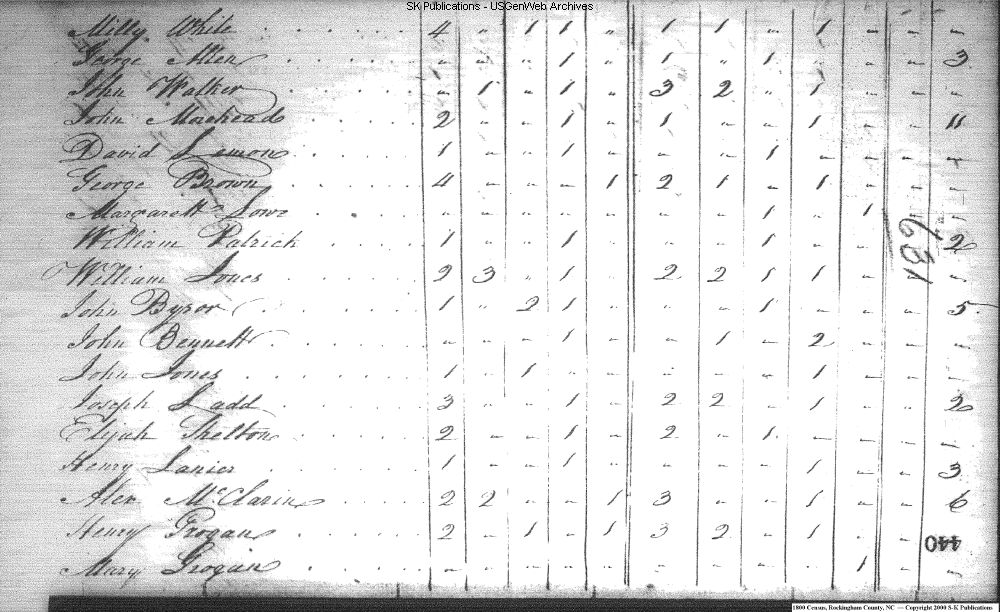 SK Publications - USGenWeb Archives
Milly White 4 " 1 1 " 1 1 " 1 - - -
George Allen - - - 1 - 1 " 1 - - - 3
John Walker - 1 - 1 - 3 2 " 1 - - -
John Moreheads 2 - - 1 - 1 - - 1 - - 11
David Lemon 1 - - 1 - - - 1 - - - -
George Brown 4 - - - 1 2 1 - 1 - - -
Margarett Lowe - - - - - - - 1 - 1 - -
William Patrick 1 - - 1 - - - 1 - - - 2
William Jones 2 3 - 1 - 2 2 1 1 - - -
John Bysor 1 " 2 1 - - - 1 - - - 5
John Bennett - - - 1 - - 1 - 2 - - -
John Jones 1 - 1 - - - - - 1 - - -
Joseph Ladd 3 - - 1 - 2 2 - 1 - - 2
Elijah Shelton 2 - - 1 - 2 - 1 - - - -
Henry Lanier 1 - - 1 - - - - 1 - - 3
Alex McClarin 2 2 - - 1 3 - - 1 - - 6
Henry Grogan 2 - 1 - 1 3 2 - 1 - - -
Mary Grogan - - - - - - - - - 1 - -
631
440
1800 Census, Rockingham County, NC — Copyright 2000 S-K Publications